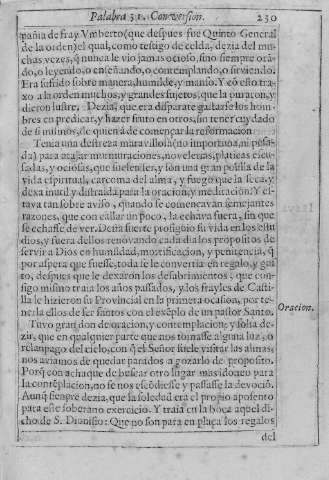 Palabra 51. Conversion. 230
pañia de fray Vmberto (que despues fue Quinto General
de la orden) el qual, como testigo de celda, dezia del mu-
chas vezes, q̃ nunca le vio jamas ocioso, sino siempre orã-
do, o leyendo, o enseñando, o contemplando, o sirviendo.
Era sufrido sobre manera, humilde, y manso. Y cõ esto tra-
xo a la orden muchos, y grandes sujetos, que la
dieron lustre. Dezia, que era disparate gastarse los hom-
bres en predicar, y hazer fruto en otros, sin tener cuydado
de si mismos, de quien à de començar la reformacion
Tenia una destreza maravillosa (no importuna, ni pesa-
da) para atajar murmuraciones, novelerias, platicas escu-
sadas, y ociosas, que suelen ser, y son una gran polilla de la
vida espiritual, carcoma del alma, y fuego que la seca, y
dexa inutil y distraida para la oracion, y meditacion. Y es-
tava tan sobre aviso, quando se començavan semejantes
razones, que con callar un poco, la echava fuera, sin que
se echasse de ver. Desta suerte prosiguio su vida en los estu
dios, y fuera dellos renovando cada dia los propositos de
servir a Dios en humildad, mortificacion, y penitencia, q̃
por aspera que fuesse, toda se le convertia en regalo, y gus
to, despues que le dexaron los desabrimientos, que con-
sigo mismo traia los años passados, y los frayles de Casti-
lla le hizieron su Provincial en la primera ocasion, por te-
nerla ellos de ser santos con el exẽplo de un pastor Santo.
Tuvo gran don de oracion, y contemplacion, y solia de-
zir, que en qualquier parte que nos tomasse alguna luz, o
relampago del cielo, con q̃ el Señor suele visitar las almas,
nos aviamos de quedar parados a gozarlo de proposito.
Porq̃ con achaque de buscar otro lugar mas idoneo para
la contẽplacion, no se nos escõdiesse y passasse la devociõ.
Aunq̃ siempre dezia, que la soledad era el propio aposento
para este soberano exercicio. Y traia en la boca aquel di-
cho de S. Dionisio: Que no son para en plaça los regalos
del
Oracion.